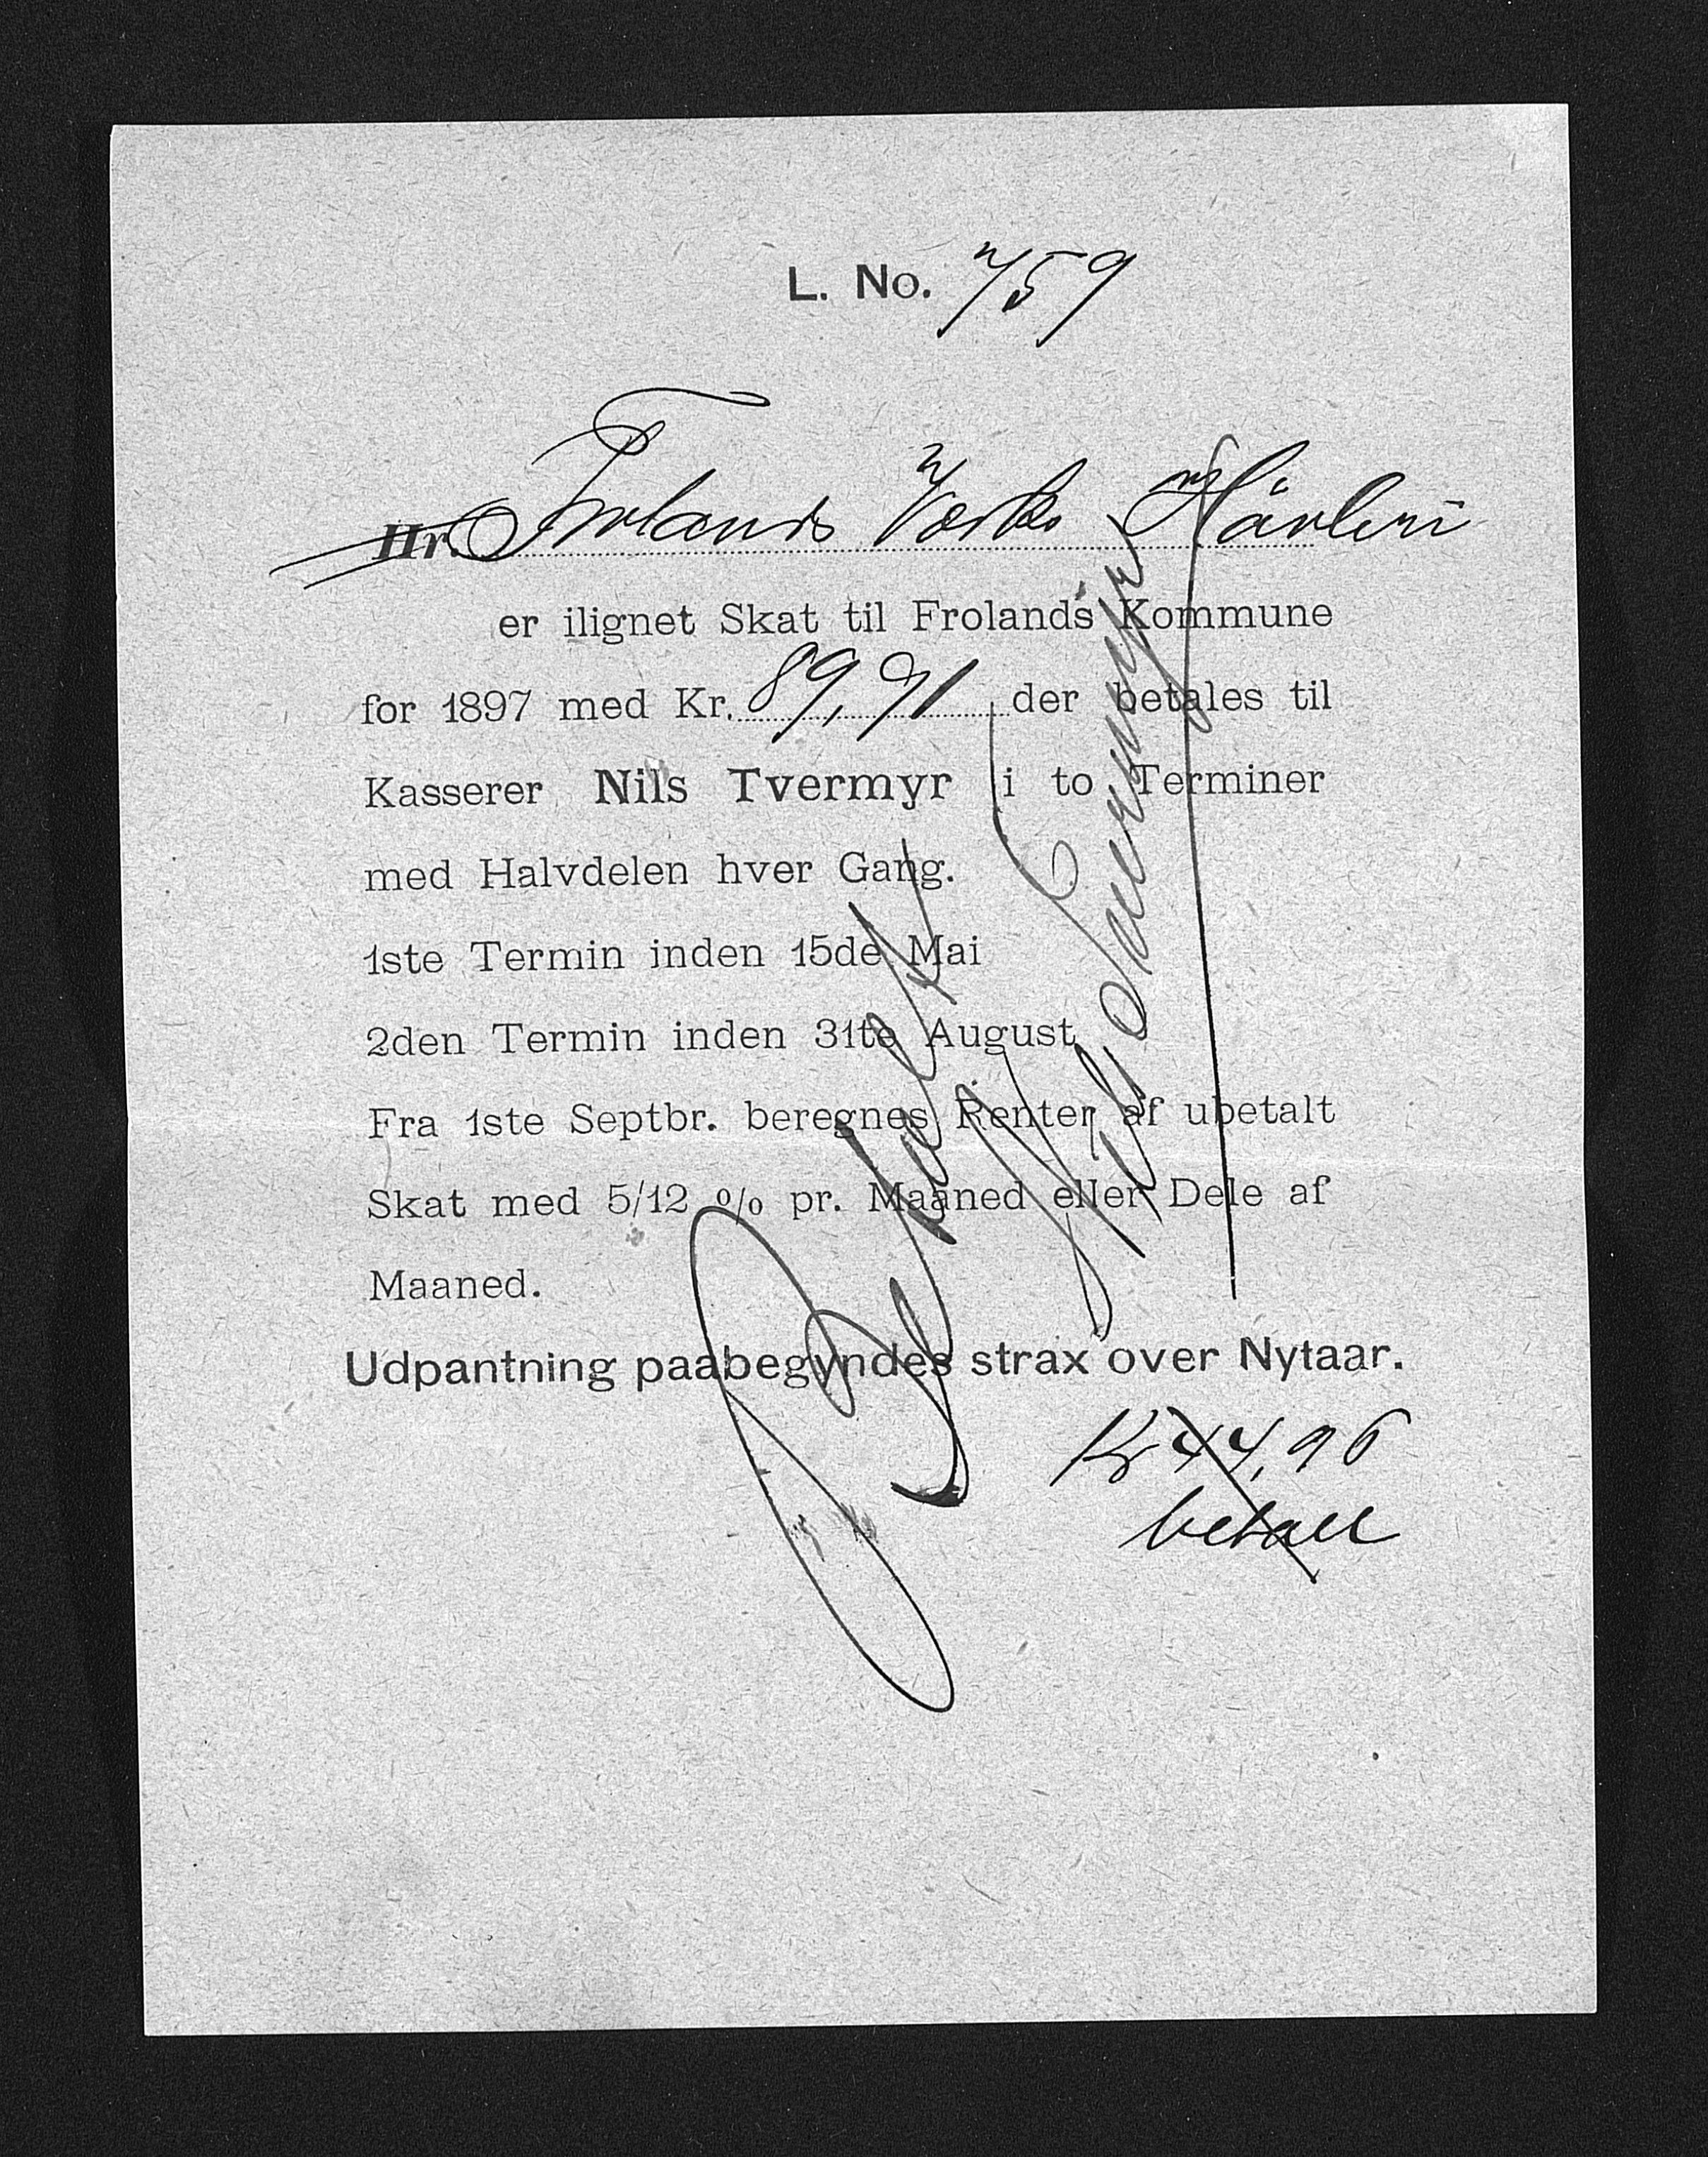 L. No. 759
Hr. Frolands Værks Høvleri
er ilignet Skat til Frolands Kommune
for 1897 med Kr. 89,91 der betales til
Kasserer Nils Tvermyr i to Terminer
med Halvdelen hver Gang.
1ste Termin inden 15de Mai
2den Termin inden 31te August
Fra 1ste Septbr. beregnes Renter af ubetalt
Skat med 5/12 % pr. Maaned eller Dele af
Maaned.
Udpantning paabegyndes strax over Nytaar.
Kr 44,96
betalt
Betalt
Nils Tvermyr